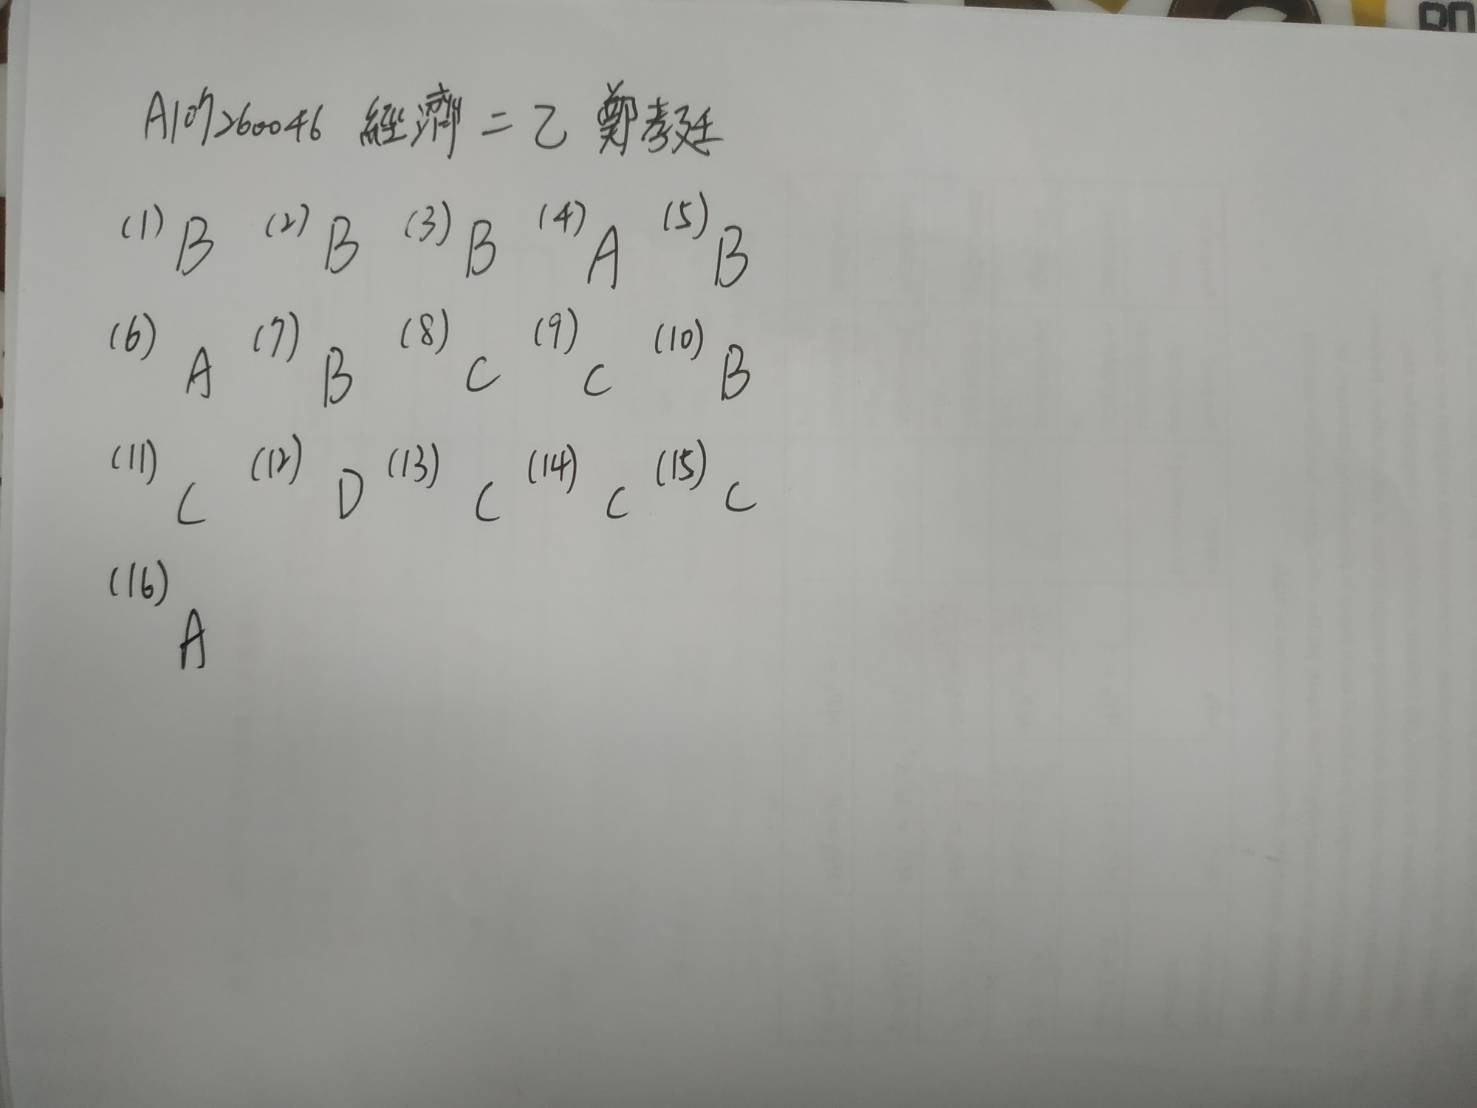 A107260046 經濟二乙 鄭孝廷
(1) B (2) B (3) B (4) A (5) B
(6) A (7) B (8) C (9) C (10) B
(11) C (12) D (13) C (14) C (15) C
(16) A